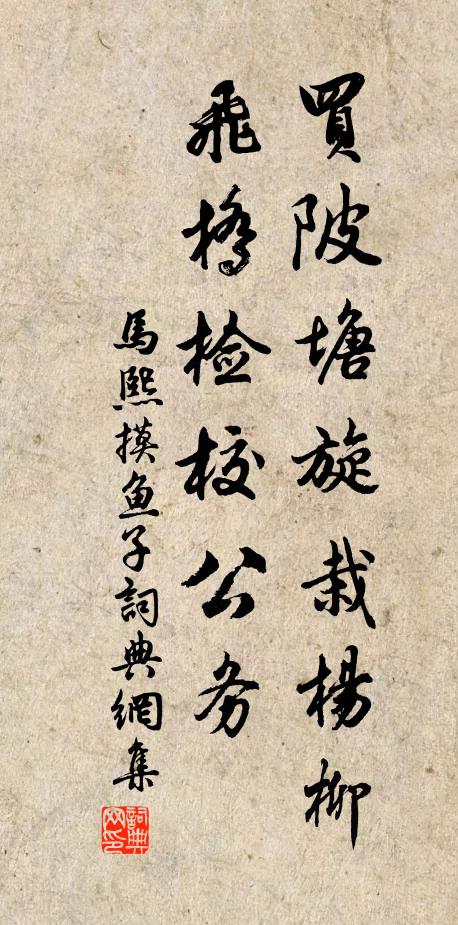 買陂塘旋栽楊柳
飛橋檢校公务
馬熙摸魚子詞典網集
詞典网印